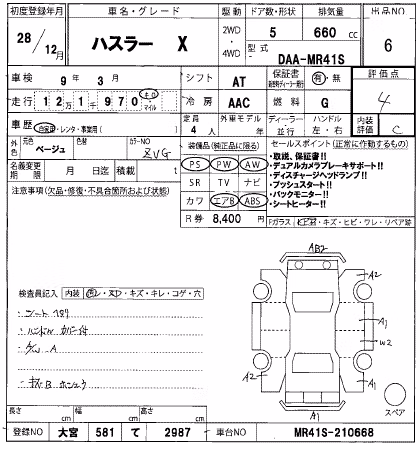 初度登録年月 車名・グレード 駆動 ドア数・形状 排気量 出品NO
28/12月 ハスラー X 2WD 4WD 5 660cc 6
型式 DAA-MR41S
車検 9年 3月 シフト AT 保証書 有・無 評価点
走行 121千970 km マイル 冷房 AAC 燃料 G 4
定員 4人 外車モデル 年 ディーラー 並行 ハンドル 左・右 内装評価 C
車歴 自家用・レンタ・事業用( )
外色 元色 ベージュ 色替 カラーNO ZVG
装備品(純正品に限る)
セールスポイント(正常に作動するもの)
PS PW AW
・取説、保証書!!
・デュアルカメラブレーキサポート!!
・ディスチャージヘッドランプ!!
・プッシュスタート!!
・バックモニター!!
・シートヒーター!!
名義変更期限 月 日迄 積載 t
SR TV ナビ
カワ エアB ABS
R券 8,400円
注意事項(欠品・修復・不具合箇所および状態)
Fガラス ヒビ・キズ・ヒビ・ワレ・リペア跡
AB2
A2
A1
W2
A2
A1
A1
スペア
検査員記入 内装
・キズ・キレ・コゲ・穴
長さ cm 幅 cm 高さ cm
登録NO 大宮 581 て 2987 車台NO MR41S-210668